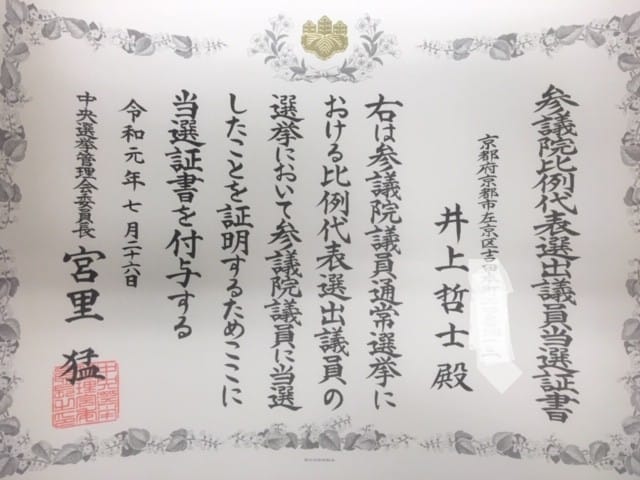 参議院比例代表選出議員当選証書
京都府京都市左京区吉田
井上哲士殿
右は参議院議員通常選挙に
おける比例代表選出議員の
選挙において参議院議員に当選
したことを証明するためここに
当選証書を付与する
令和元年七月二十六日
中央選挙管理会委員長
宮里猛